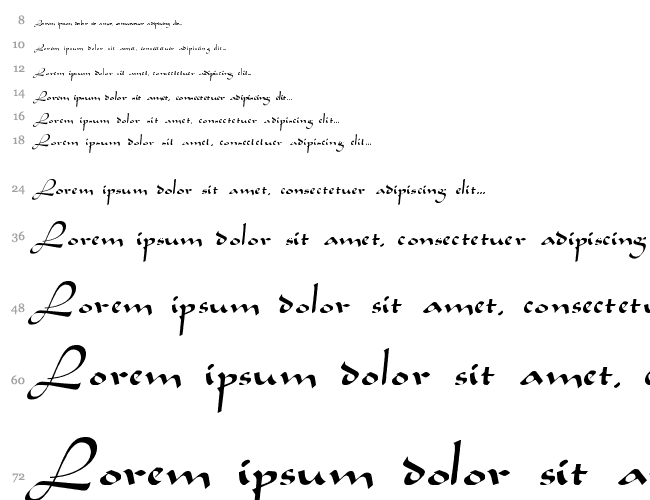 8 Lorem ipsum dolor sit amet, consectetuer adipiscing elit...
10 Lorem ipsum dolor sit amet, consectetuer adipiscing elit...
12 Lorem ipsum dolor sit amet, consectetuer adipiscing elit...
14 Lorem ipsum dolor sit amet, consectetuer adipiscing elit...
16 Lorem ipsum dolor sit amet, consectetuer adipiscing elit...
18 Lorem ipsum dolor sit amet, consectetuer adipiscing elit...
24 Lorem ipsum dolor sit amet, consectetuer adipiscing elit...
36 Lorem ipsum dolor sit amet, consectetuer adipiscing
48 Lorem ipsum dolor sit amet, consectetu
60 Lorem ipsum dolor sit amet, c
72 Lorem ipsum dolor sit a